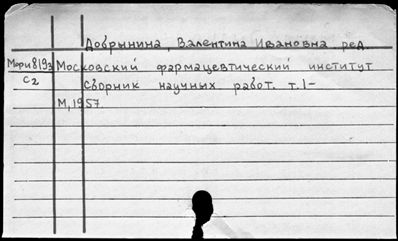 Добрынина, Валентина Ивановна, ред.
Мори8193 Московский фармацевтический институт
С2 Сборник научных работ. т.1-
М, 1957